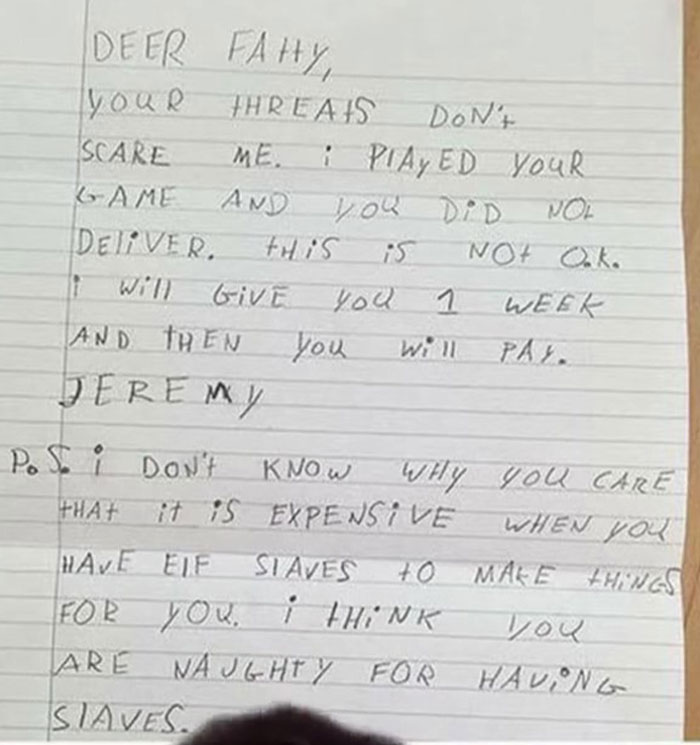 DEER FAtty,
your tHREAtS DON't
SCARE ME. i PlAyED your
GAME AND you DiD Not
DEliVER. tHiS iS NOt O.k.
i Will GiVE you 1 WEEK
AND tHEN you will PAy.
JEREMy
P.S. i DON't KNOW WHy you CARE
tHAt it iS EXPENSiVE WHEN you
HAVE ElF SlAVES tO MAKE tHiNGS
FOR you. i tHiNK you
ARE NAUGHTY FOR HAViNG
SlAVES.